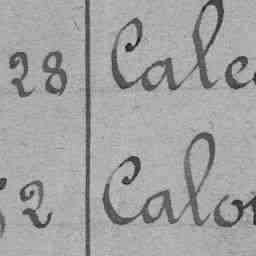 28 Cale
2 Calo